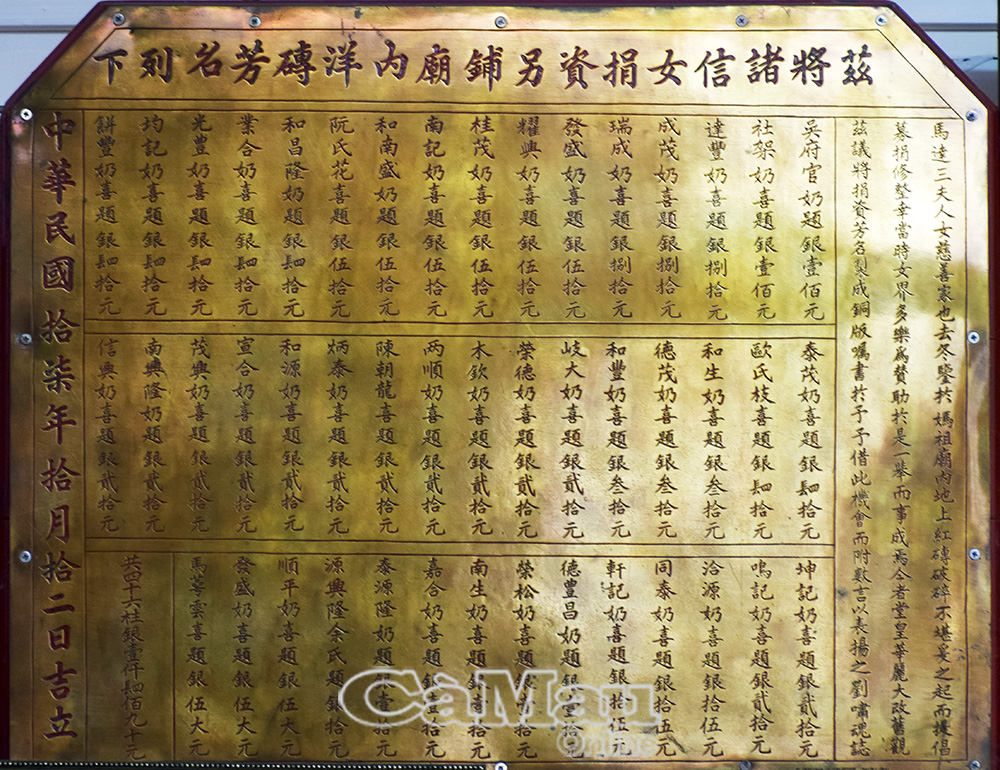 茲將諸信女捐資另鋪廟內洋磚芳名列下
馬達三夫人女慈善家也去冬鑒於媽祖廟內地上紅磚破碎不堪妥之起而提倡
募捐修整幸當時女界多樂為贊助於是一舉而事成焉今者堂皇華麗大改舊觀
茲議將捐資芳名製成銅版囑書於予予借此機會而附數言以表揚之劉嘯魂誌
吳府官奶題銀壹佰元
社架奶喜題銀壹佰元
達豐奶喜題銀捌拾元
成茂奶喜題銀捌拾元
瑞成奶喜題銀捌拾元
發盛奶喜題銀伍拾元
耀興奶喜題銀伍拾元
桂茂奶喜題銀伍拾元
南記奶喜題銀伍拾元
和南盛奶題銀伍拾元
阮氏花喜題銀伍拾元
和昌隆奶題銀肆拾元
業合奶喜題銀肆拾元
光豐奶喜題銀肆拾元
均記奶喜題銀肆拾元
餅豐奶喜題銀肆拾元
泰茂奶喜題銀肆拾元
歐氏枝喜題銀肆拾元
和生奶喜題銀叁拾元
德茂奶喜題銀叁拾元
和豐奶喜題銀叁拾元
岐大奶喜題銀貳拾元
榮德奶喜題銀貳拾元
木欽奶喜題銀貳拾元
兩順奶喜題銀貳拾元
陳朝龍喜題銀貳拾元
炳泰奶喜題銀貳拾元
和源奶喜題銀貳拾元
宣合奶喜題銀貳拾元
茂興奶喜題銀貳拾元
南興隆奶題銀貳拾元
信興奶喜題銀貳拾元
坤記奶喜題銀貳拾元
鳴記奶喜題銀貳拾元
洽源奶喜題銀拾伍元
同泰奶喜題銀拾伍元
軒記奶喜題銀拾伍元
德豐昌奶題銀壹拾元
榮松奶喜題銀壹拾元
南生奶喜題銀壹拾元
嘉合奶喜題銀壹拾元
泰源隆奶題銀壹拾元
源興隆余氏題銀拾元
順平奶喜題銀伍大元
發盛奶喜題銀伍大元
馬萼雲喜題銀伍大元
共四十六柱銀壹仟肆佰九十元
中華民國拾柒年拾月拾二日吉立
CàMau
Online